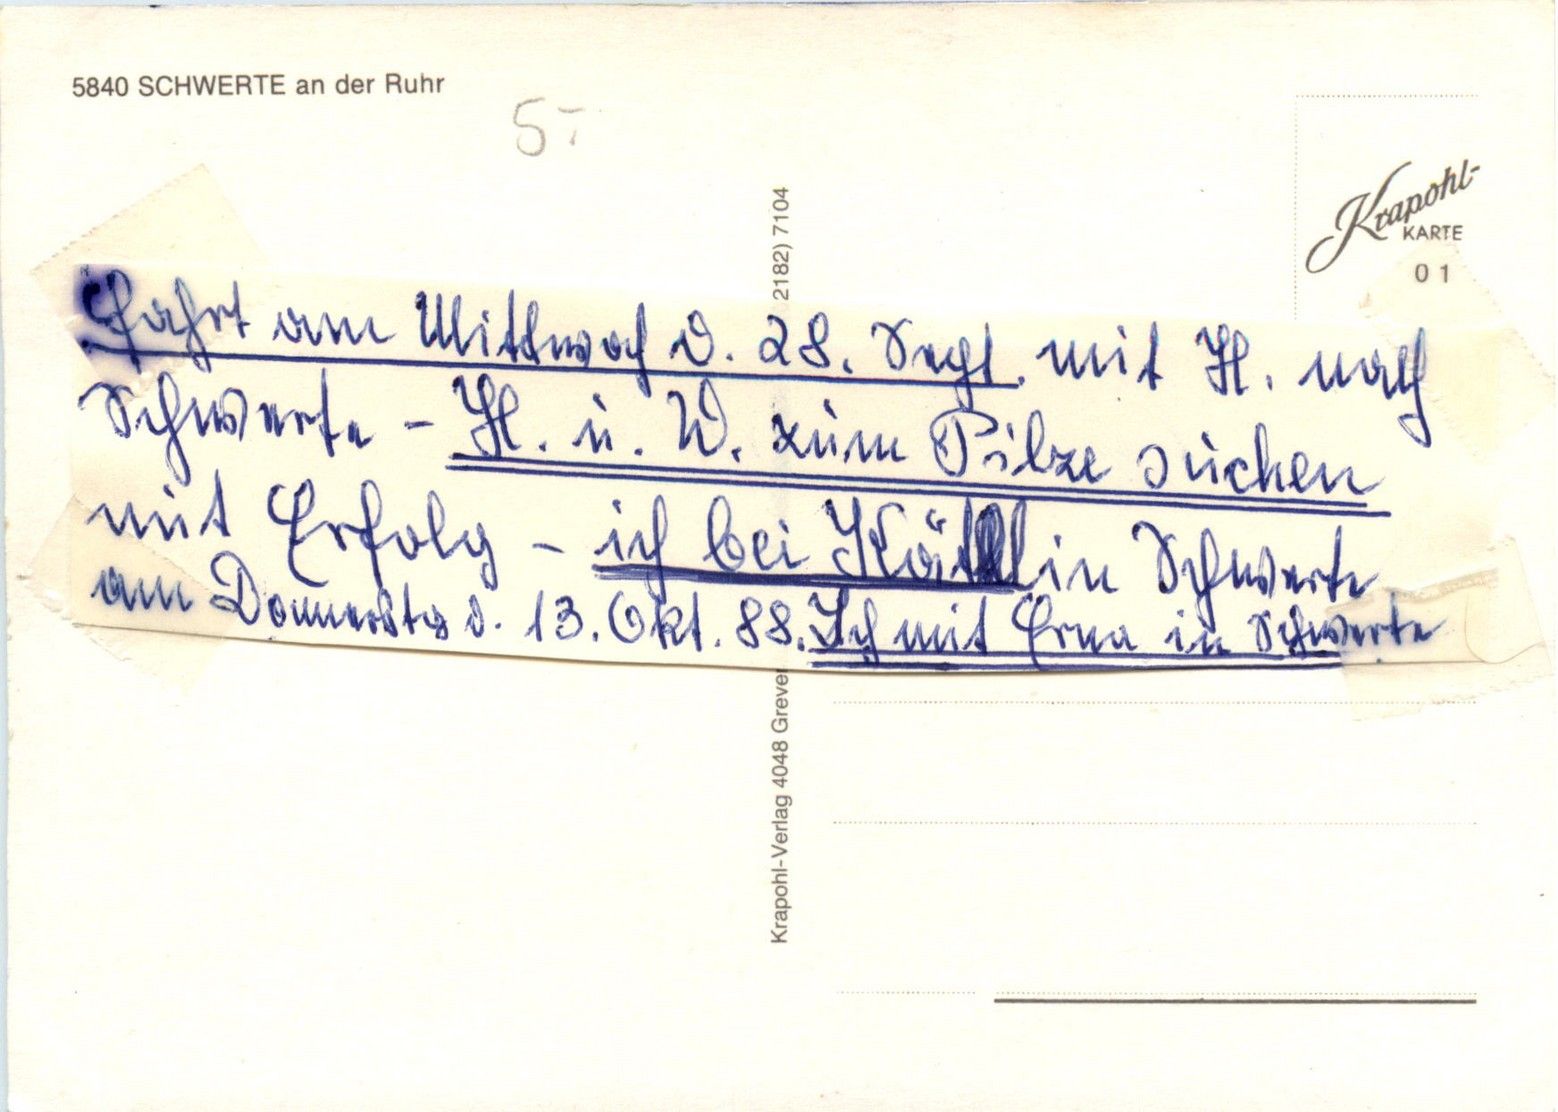 5840 SCHWERTE an der Ruhr
5.-
Krapohl-
KARTE
01
2182) 7104
Fahrt am Mittwoch d. 28. Sept. mit H. nach
Schwerte - H. u. W. zum Pilze suchen
mit Erfolg - ich bei in Schwerte
am Donnerstag d. 13. Okt. 88. Ich mit Erna in Schwerte
Krapohl-Verlag 4048 Greven